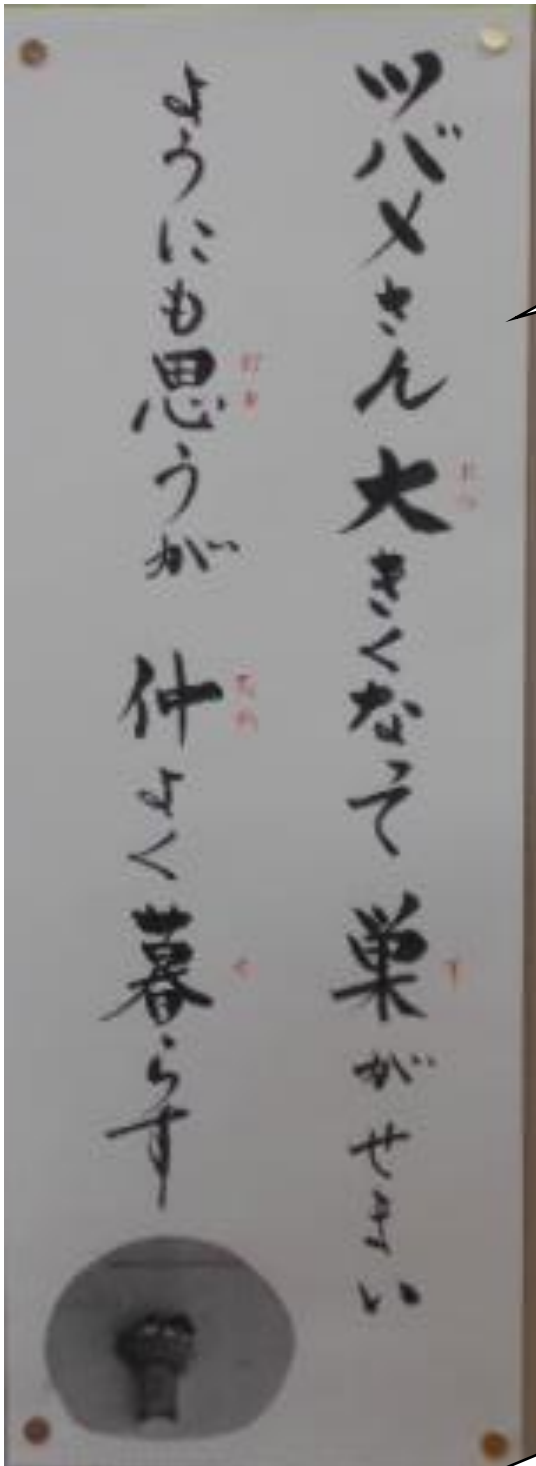 ツバメさん 大きくなって 巣がせまい
ようにも思うが 仲よく暮らす